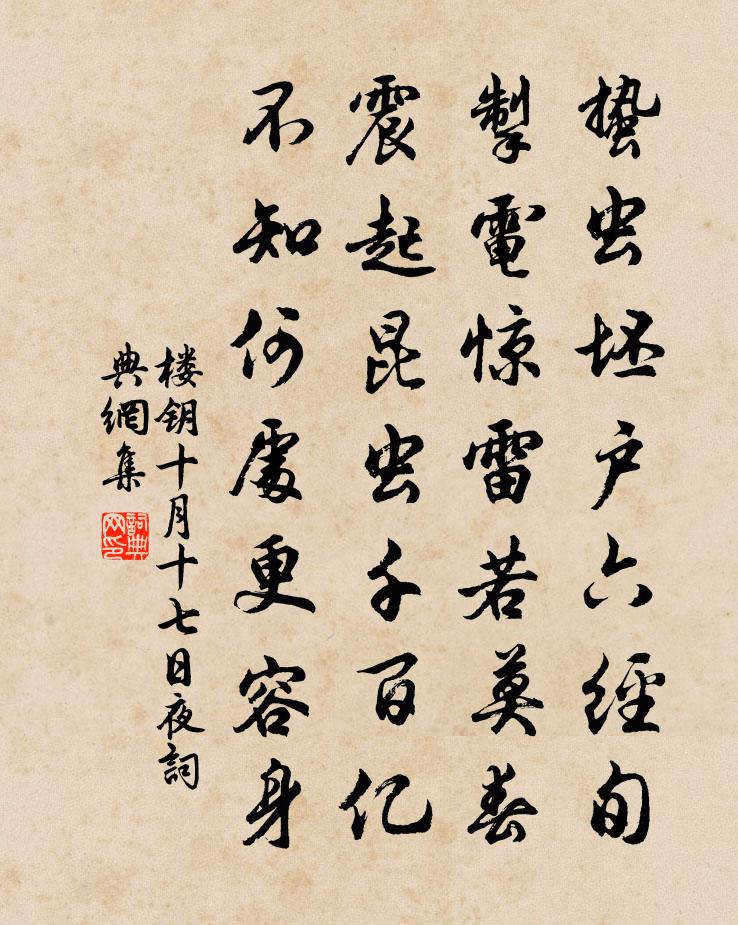 蛰虫坯户六經旬
掣電惊雷若莫春
震起昆虫千百亿
不知何處更容身
楼钥十月十七日夜詞
典網集
詞典网印